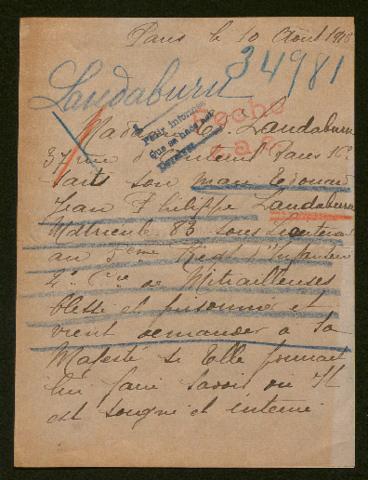 Paris le 10 Aout 1918
34981
Landaburu
Madame E. Landaburu
37 rue d'Auteuil Paris 16e
son mari Edouard
Jean Philippe Landaburu
Matricule 83 sous Lieutenant
au 5eme Regt d'Infanterie
2e Cie de Mitrailleuses
blessé et prisonnier et
vient demander a Sa
Majesté si Elle pourrait
lui faire savoir ou Il
est soigné et interné